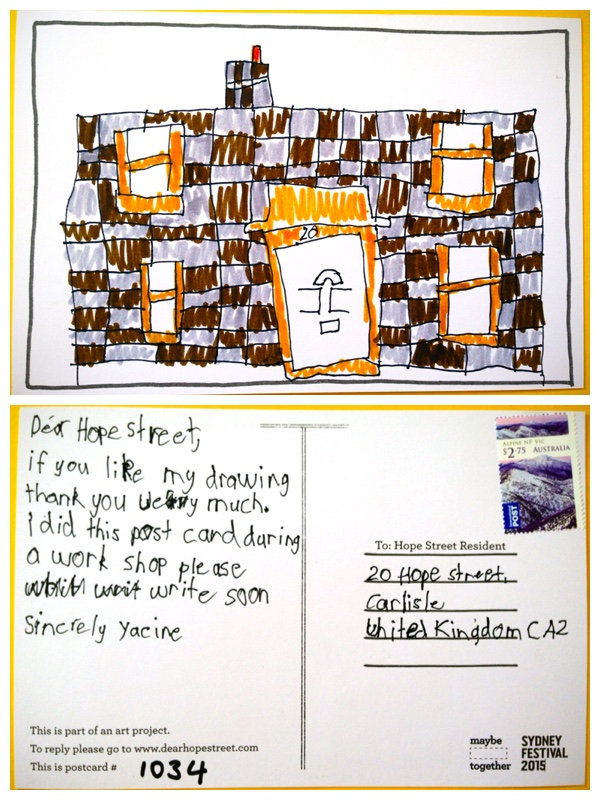 20
Dear Hope street,
if you like my drawing
thank you very much.
i did this post card during
a work shop please
write soon
Sincrely Yacine
ALPINE NP, VIC
$2.75 AUSTRALIA
POST
To: Hope Street Resident
20 Hope street,
Carlisle
United Kingdom CA2
This is part of an art project.
To reply please go to www.dearhopestreet.com
This is postcard # 1034
maybe
together
SYDNEY
FESTIVAL
2015